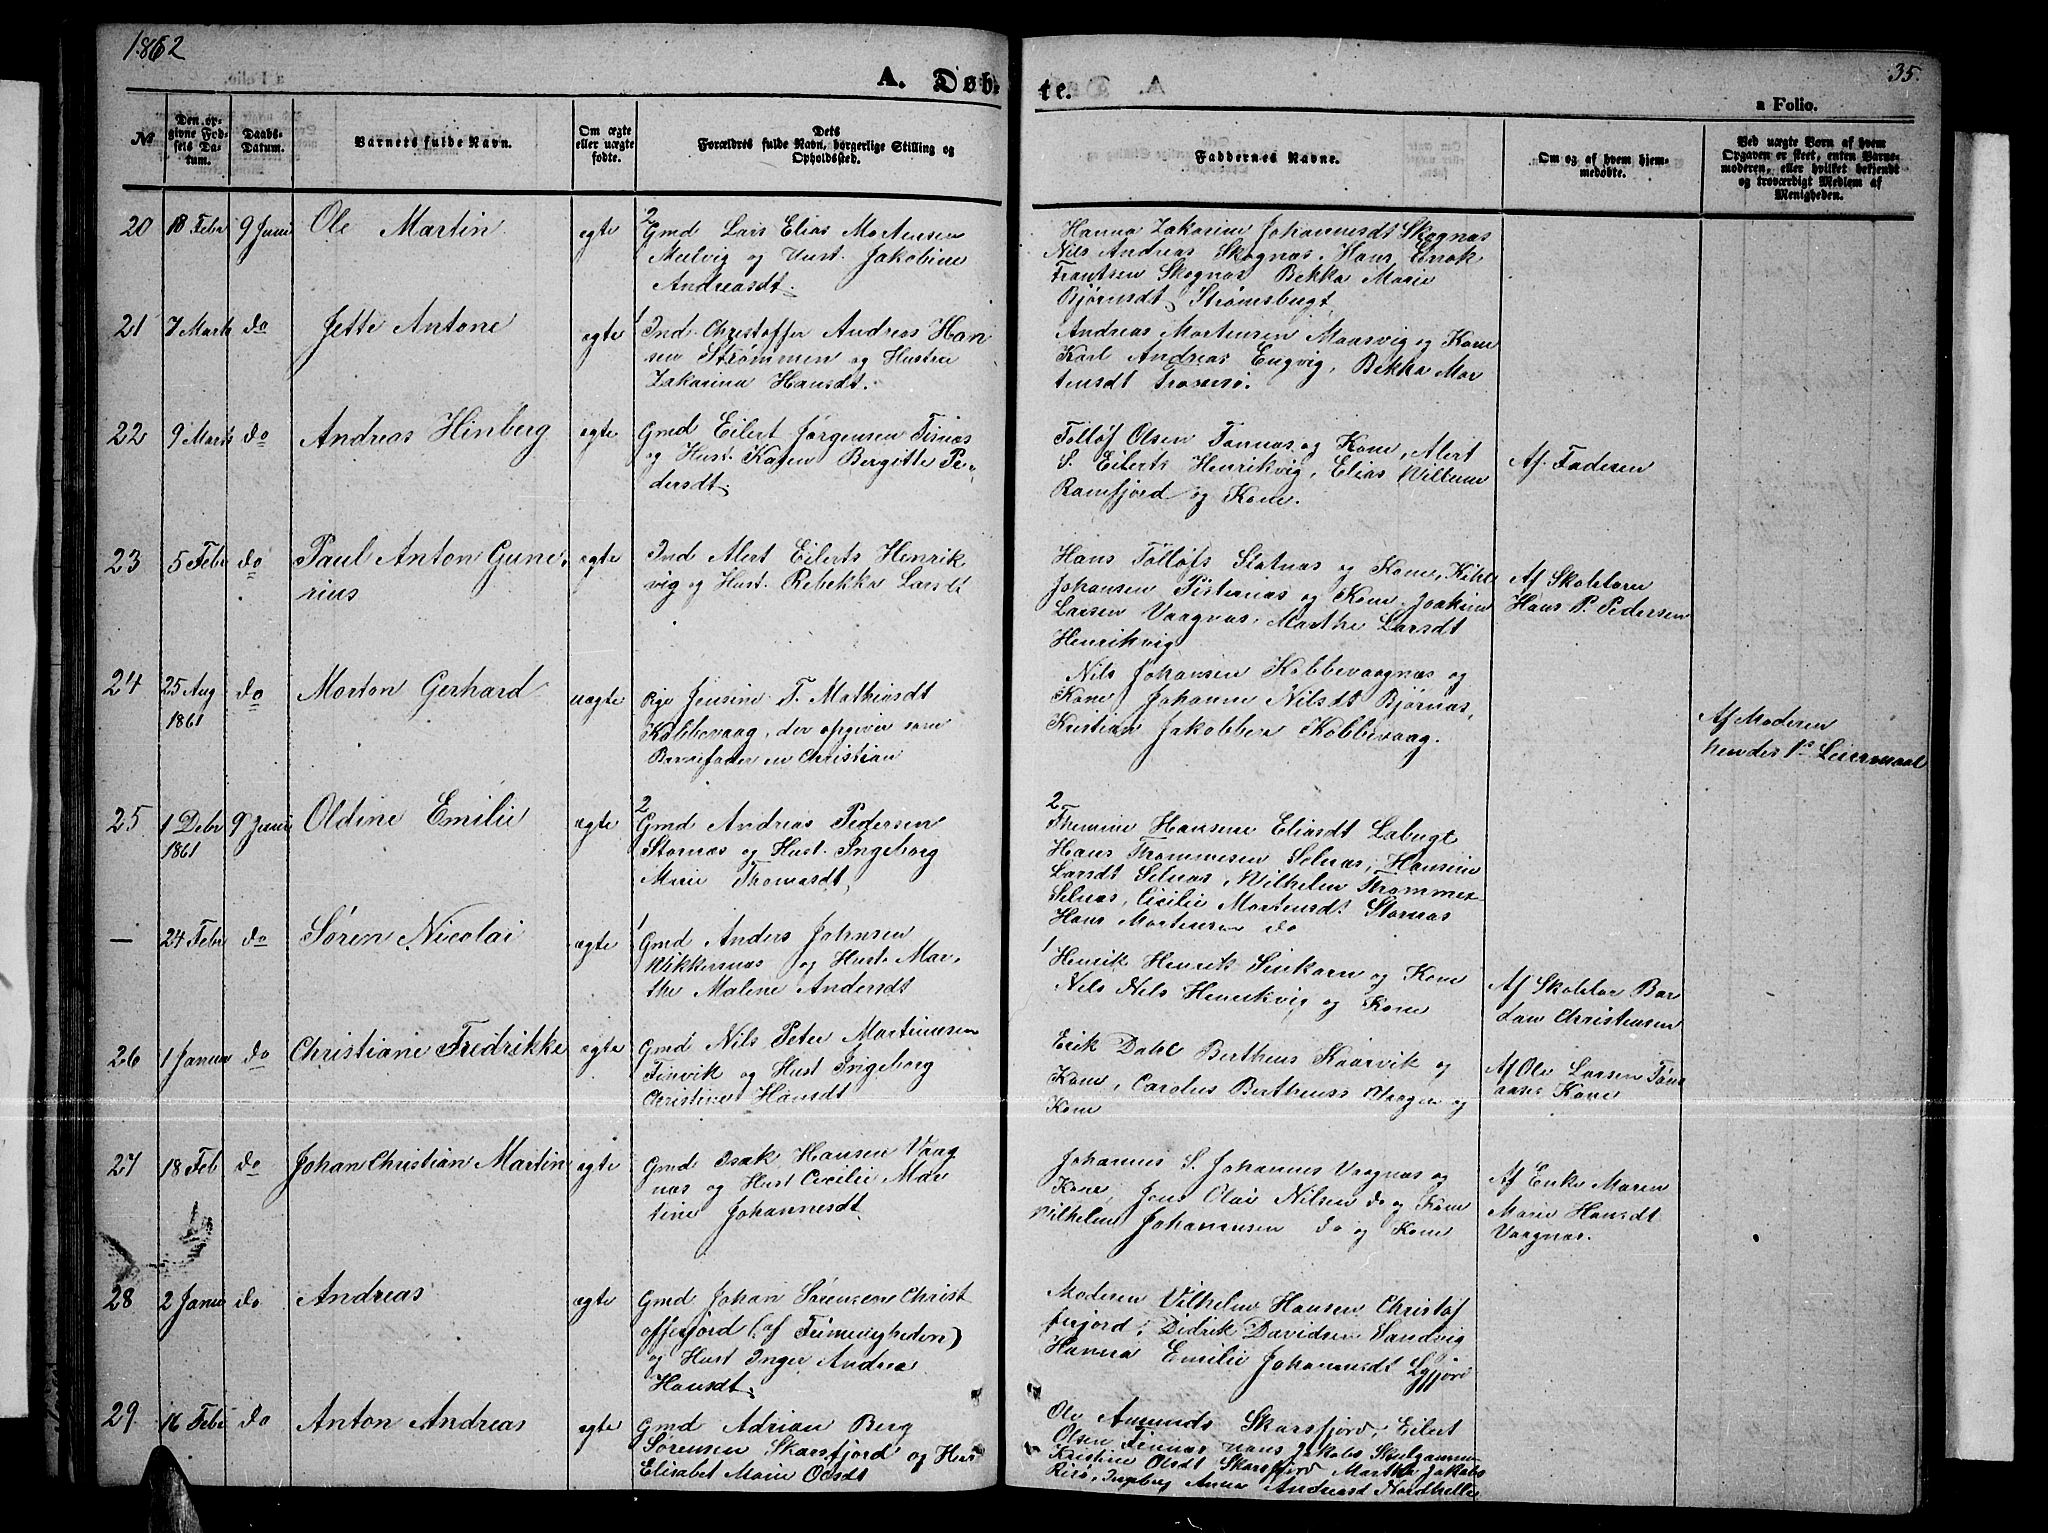 1862
35.
A. Døb-
te.
a Folio.
№
Den op-
givne Fød-
sels Da-
tum.
Daabs-
Datum.
Barnets fulde Navn.
Om ægte
eller uægte
fødte.
Dets
Forældres fulde Navn, borgerlige Stilling og
Opholdssted.
Faddernes Navne.
Om og af hvem hjem-
medøbte.
Ved uægte Børn af hvem
Opgaven er skeet, enten Barne-
moderen, eller hvilket bekjendt
og troværdigt Medlem af
Menigheden.
20 18 Febr 9 Juni Ole Martin egte
2
Gmd Lars Elias Mortensen
og Hust. Jakobine
Andreasdt.
Hanna Zakarine Johannesdt Skognæs
Nils Andreas Skognæs, Hans Enok
Frantsen Skognæs Bekka Marie
Bjørnsdt Strømsbugt
21 7 Marts do Jette Antone egte
1
Ind. Christoffer Andreas Han
sen Strømmen og Hustru
Zakarina Hansdt.
Andreas Mortensen Maasvig og Kone
Karl Andreas Engvig, Bekka Mor
tensdt Tromsø.
22 9 Marts do Andreas Hinberg egte
Gmd Eilert Jørgensen Finnæs
og Hust. Karen Bergitte Pe-
dersdt.
Tolløf Olsen Tonnæs og Kone, Alert
S. Eilerts Henrikvig, Elias Willum
Ramfjord og Kone.
Af Faderen
23 5 Febr do Paul Anton Gune-
rius
egte
Ind Alert Eilerts Henrik
vig og Hust. Rebekka Larsdt
Hans Tolløfs Slatnæs og Kone,
Johansen og Kone. Joakim
Larsen Vaagnæs, Marthe Larsdt
Henrikvig
Af Skolelærer
Hans P. Pedersen
24 25 Aug
1861
do Morton Gerhard uægte
Pige Jensine T. Mathiasdt
Kobbevaag, der opgiver som
Barnefader en Christian
Nils Johansen Kobbevaagnæs og
Kone Johanne Nilsdt Bjørnæs,
Kristian Jakobsen Kobbevaag.
Af Moderen
hendes 1ste Leiermaal
25 1 Debr
1861
9 Juni Oldine Emilie ægte
2
Gmd Andreas Pedersen
Stornæs og Hust. Ingeborg
Marie Thomasdt.
2
Hansine Eliasdt Labugt
Hans Thommesen Selnæs, Hansine
Larsdt Selnæs, Wilhelm Thommes
Selnæs, Cicilie Mortensdt Stornæs
Hans Mortensen do
— 24 Febr do Søren Nicolai ægte
1
Gmd Anders Johnsen
og Hust. Mar-
the Malene Andersdt
1
Henrik Henrik og Kone
Nils Nils Henrikvig og Kone
Af Skolelær Bar
Christensen
26 1 Januar do Christiane Fredrikke egte
Gmd Nils Peter Martinusen
Finvik og Hust Ingeborg
Christine Hansdt
Erik Dahl Bertheus Kaarvik og
Kone, Carolus Bertheuss og
Kone
Af Ole Larsen
Kone
27 18 Feb do Johan Christian Martin egte
Gmd Isak Hansen Vaag
næs og Hust Cicilie Mar
tine Johannesdt
Johannes S. Johannes Vaagnæs og
Kone, Jens Olai Nilsen do og Kone
Vilhelm Johannesen do og Kone
Af Enke Maren
Marie Hansdt
Vaagnæs.
28 2 Janu do Andreas ægte
Gmd Johan Sørensen Christ
offerfjord (af Frimenigheden)
og Hust Inger Andrea
Hansdt.
Moderen Vilhelm Hansen Christof
ferfjord, Didrik Davidsen Sandvig
Hanna Emilie Johannesdt
29 16 Febr do Anton Andreas egte
Gmd Adrian Berg
Sørensen Skarsfjord og Hust
Elisabet Marie Olsdt
Ole Amunds Skarsfjord, Eilert
Olsen Finnæs Hans Jakobs Skulgammen
Kristine Olsdt Skarsfjord Martha Jakobs
Risø, Ingeborg Anna Andreasd